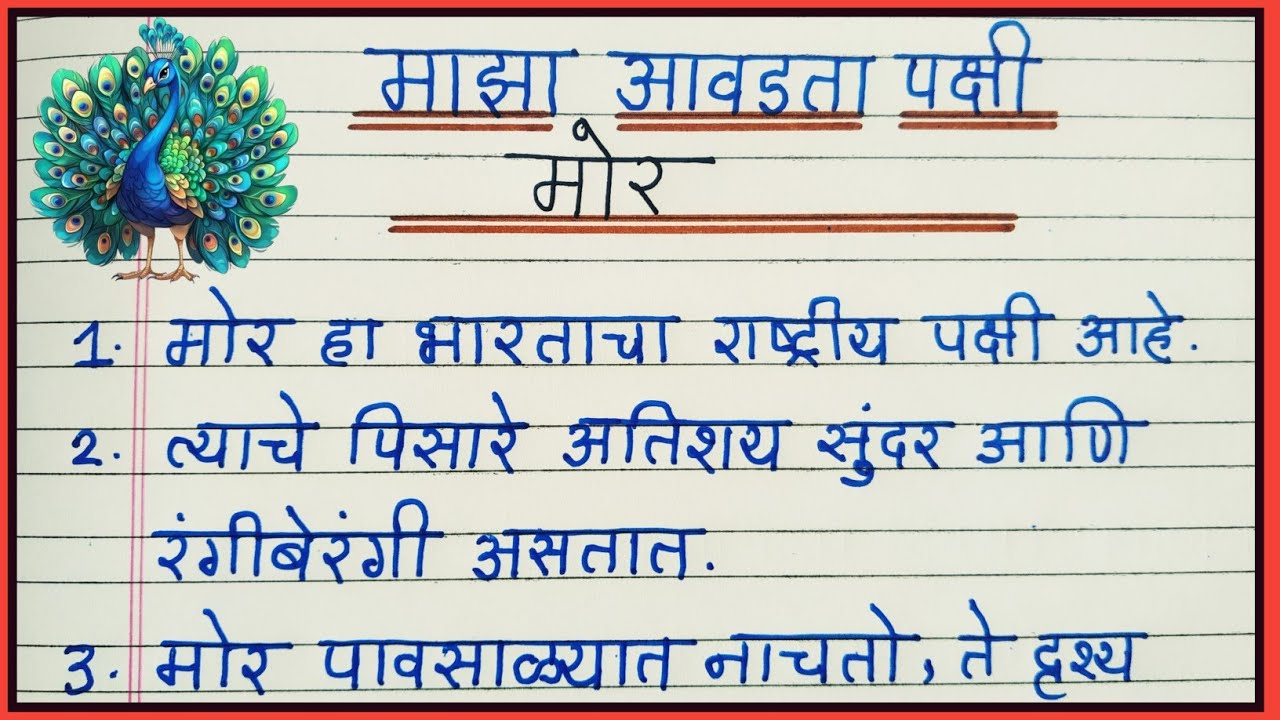 माझा आवडता पक्षी
मोर
1. मोर हा भारताचा राष्ट्रीय पक्षी आहे.
2. त्याचे पिसारे अतिशय सुंदर आणि
रंगीबेरंगी असतात.
3. मोर पावसाळ्यात नाचतो, ते दृश्य